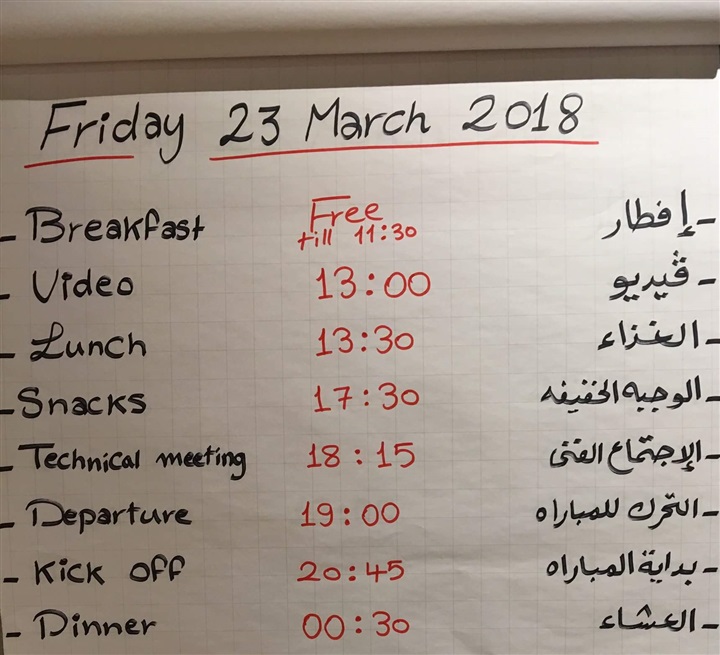 Friday 23 March 2018
- Breakfast Free till 11:30 - إفطار
- Video 13:00 - ڤيديو
- Lunch 13:30 - الغذاء
- Snacks 17:30 - الوجبه الخفيفه
- Technical meeting 18:15 - الإجتماع الفنى
- Departure 19:00 - التحرك للمباراه
- Kick off 20:45 - بداية المباراه
- Dinner 00:30 - العشاء